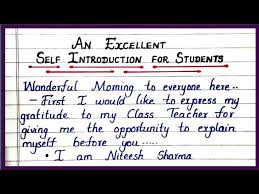 An Excellent
Self Introduction for Students
Wonderful Morning to everyone here..
- First I would like to express my
gratitude to my Class Teacher for
giving me the opportunity to explain
myself before you.....
• I am Niteesh Sharma